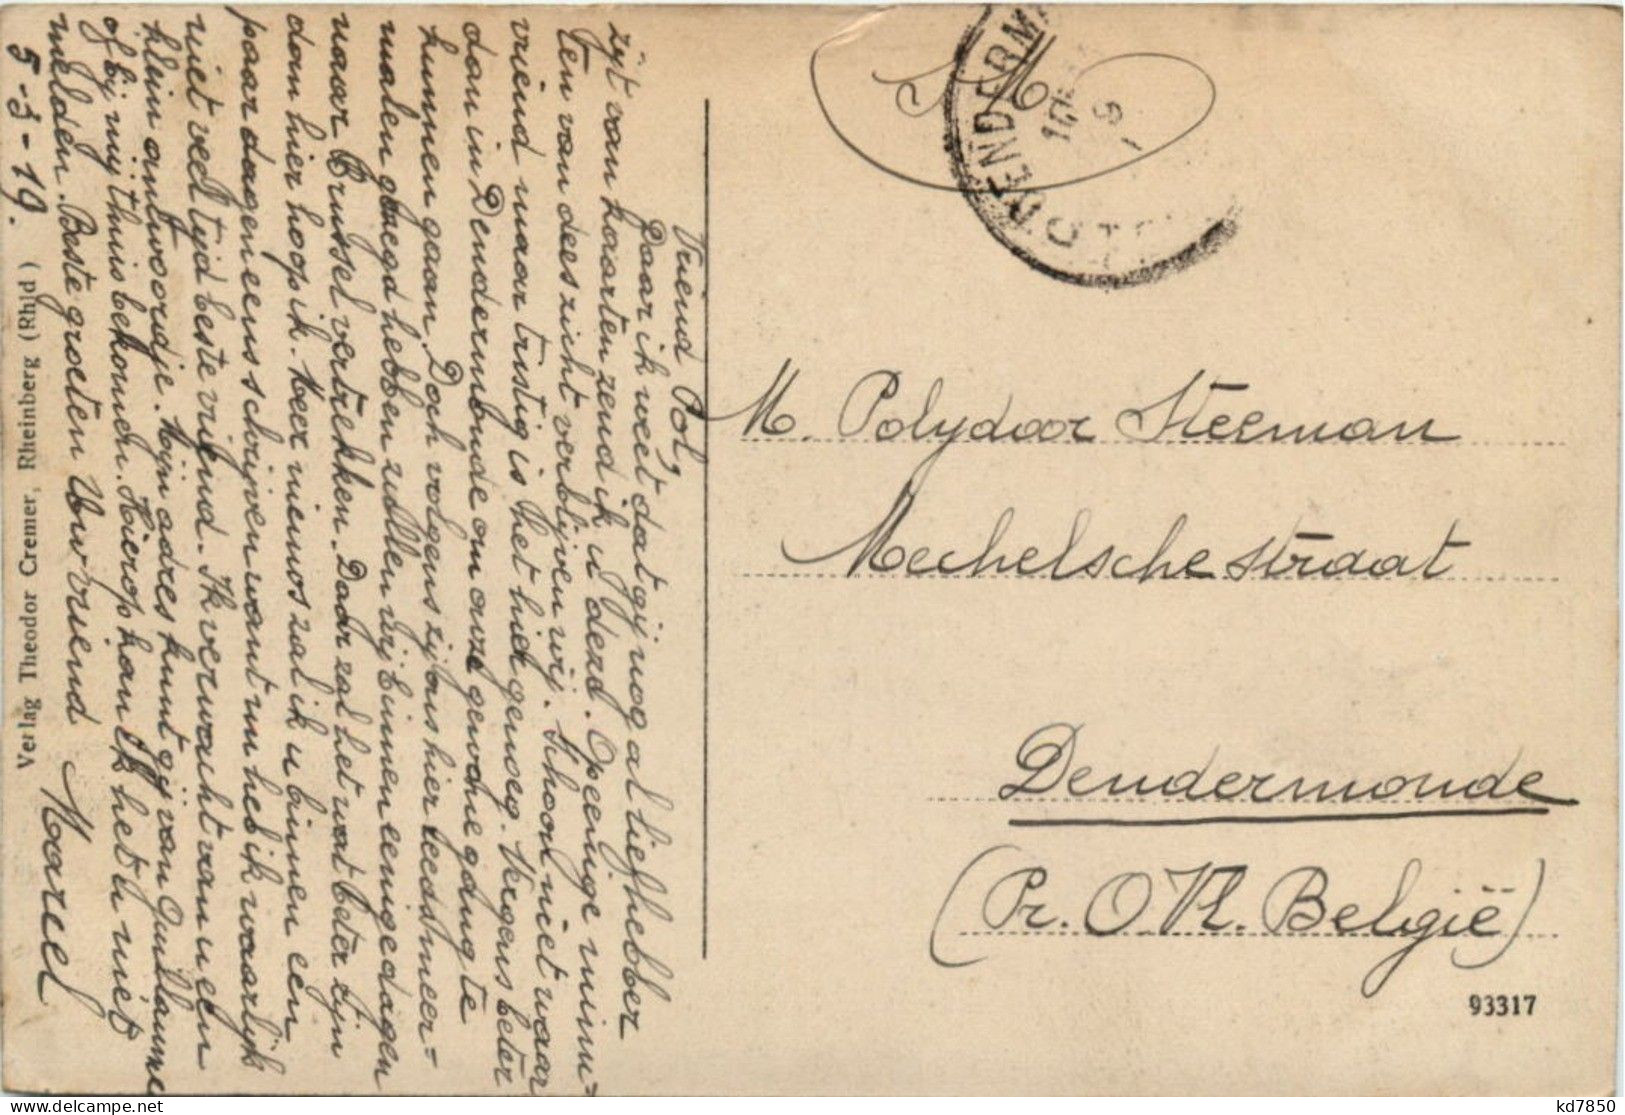 Vriend Pol,
Daar ik weet dat gij nog al liefhebber
zijt van kaarten zend ik u deze. Op eenige minu=
ten van dees zicht verblijven wij. Schoon, niet waar
vriend maar tristig is het hier genoeg. Nergens beter
dan in Dendermonde om onze gewone gang te
kunnen gaan. Doch volgens zij ons hier reeds meer=
malen gezegd hebben zullen wij binnen eenige dagen
naar Brussel vertrekken. Daar zal het wat beter zijn
dan hier hoop ik. Meer nieuws zal ik u binnen een
paar dagen eens schrijven want nu heb ik waarlijk
niet veel tijd beste vriend. Ik verwacht van u een
klein antwoordje. Mijn adres kunt gij van Guillaume
of bij mij thuis bekomen. Hierop kan ik het u niet
melden. Beste groeten Uw vriend Marcel
5-3-19.
Verlag Theodor Cremer, Rheinberg (Rhld)
S. M.
DENDERM
M. Polydoor Steeman
Mechelsche straat
Dendermonde
(Pr. O Vl. België)
93317
kd7850